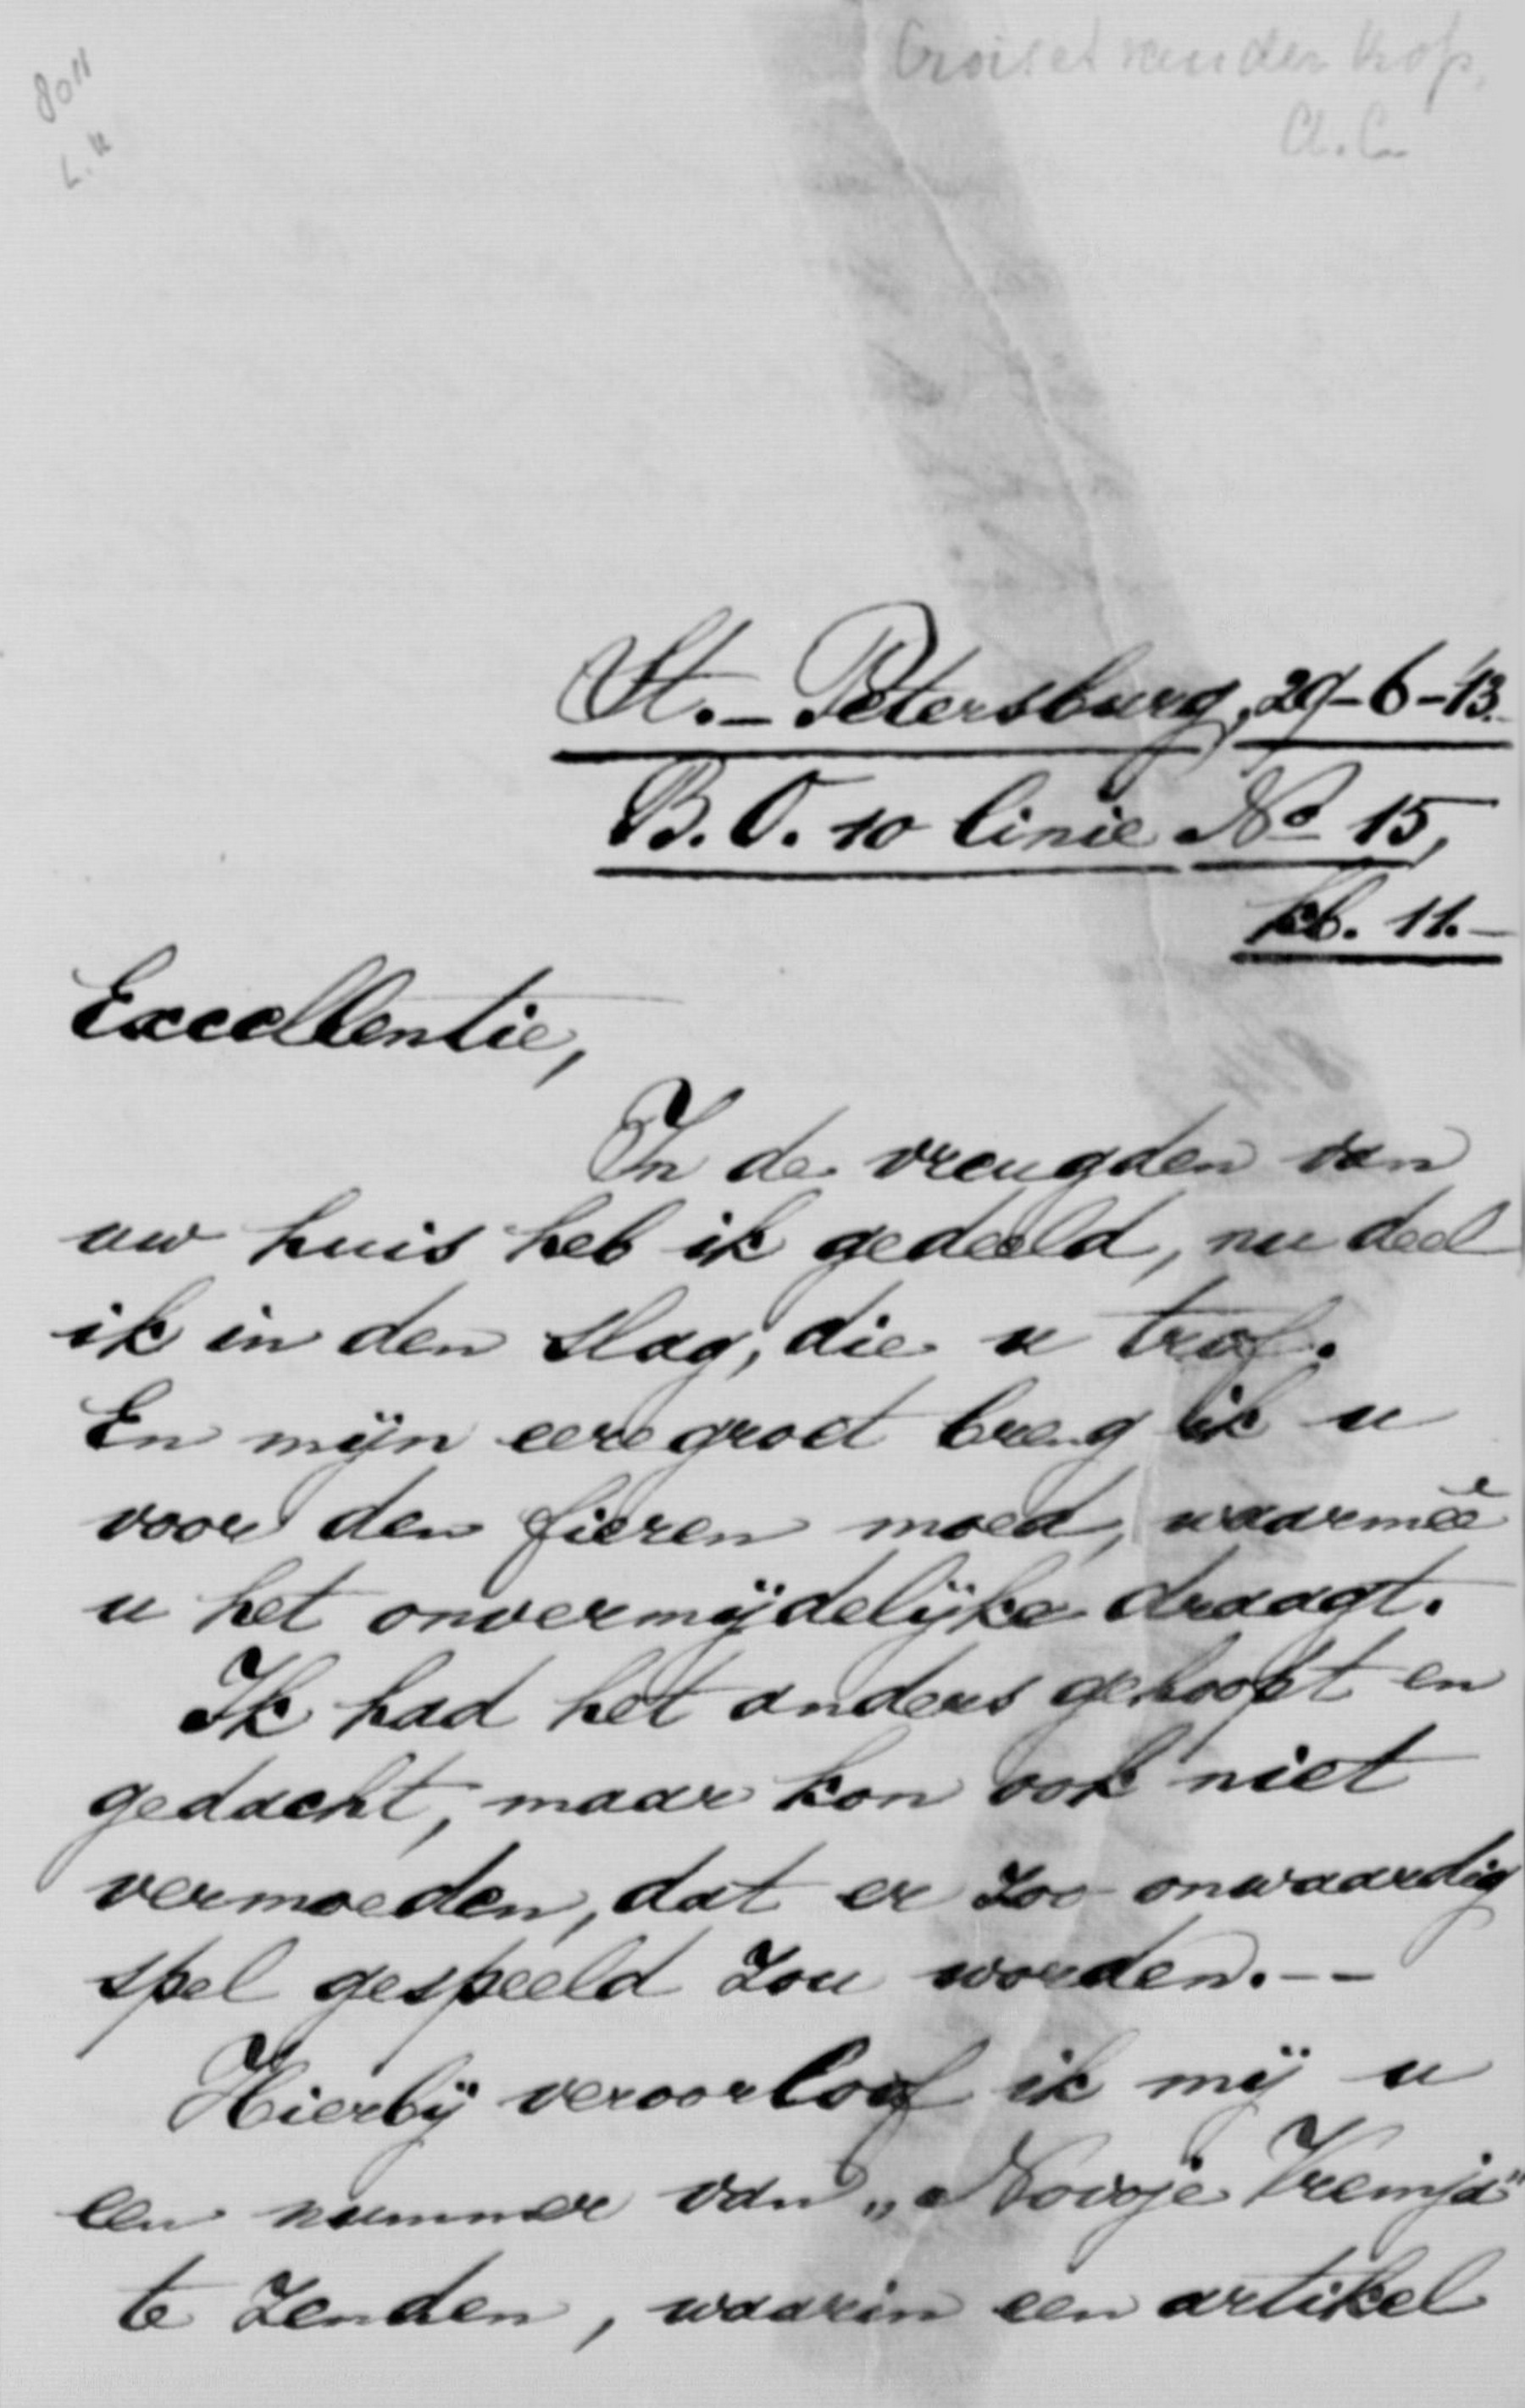 8011
L. K
Croiset van der Kop,
A. C.
St.- Petersburg, 29-6-'13.
B.O. 10 linie No 15,
kb. 11.-
Excellentie,
In de vreugden van
uw huis heb ik gedeeld, nu deel
ik in den slag, die u trof.
En mijn eeregroet breng ik u
voor den fieren moed, waarmeê
u het onvermijdelijke draagt.
Ik had het anders gehoopt en
gedacht, maar kon ook niet
vermoeden, dat er zoo onwaardig
spel gespeeld zou worden.--
Hierbij veroorloof ik mij u
een nummer van „Novoje Vremja"
te zenden, waarin een artikel